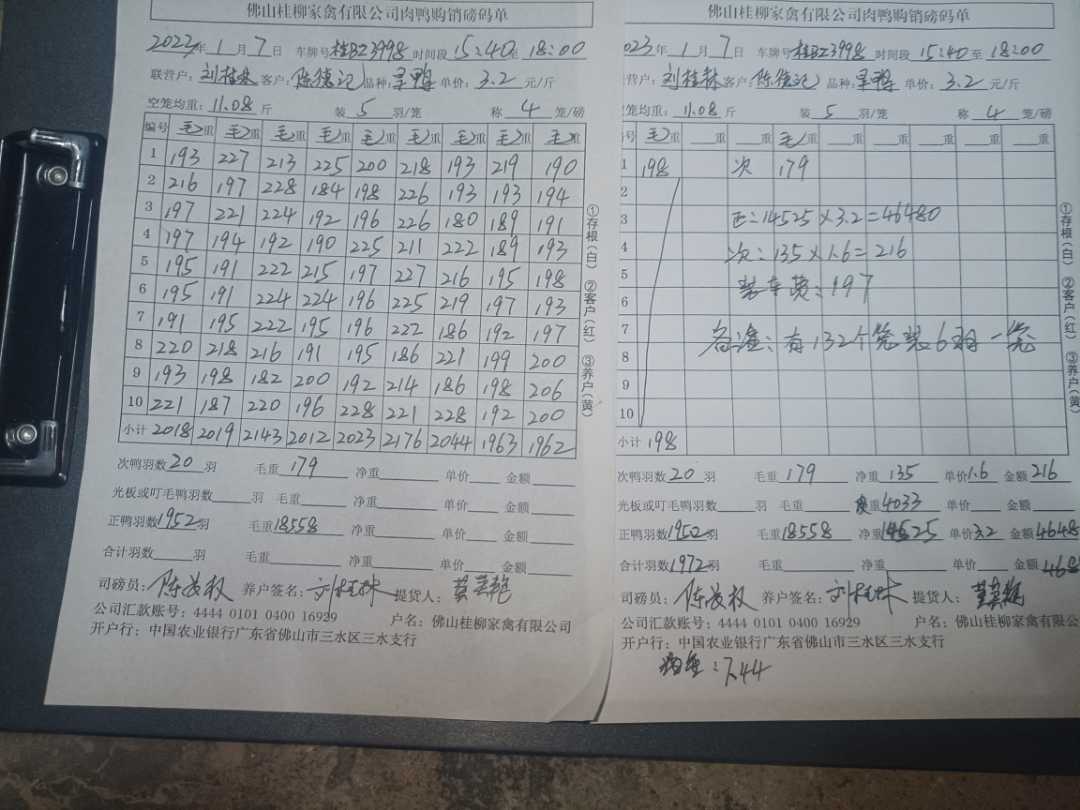 佛山桂柳家禽有限公司肉鸭购销磅码单
2023年1月7日 车牌号桂BZ3998 时间段15:40至18:00
联营户:刘桂林 客户:陈德记 品种: 鸭 单价:3.2元/斤
空笼均重:11.08斤 装5羽/笼 称4笼/磅
编号 毛重 毛重 毛重 毛重 毛重 毛重 毛重 毛重 毛重
1 193 227 213 225 200 218 193 219 190
2 216 197 228 184 198 226 193 193 194
3 197 221 224 192 196 226 180 189 191
4 197 194 192 190 225 211 222 189 193
5 195 191 222 215 197 227 216 195 198
6 195 191 224 224 196 225 219 197 193
7 191 195 222 195 196 222 186 192 197
8 220 218 216 191 195 186 221 199 200
9 193 198 182 200 192 214 186 198 206
10 221 187 220 196 228 221 228 192 200
小计 2018 2019 2143 2012 2023 2176 2044 1963 1962
①存根(白) ②客户(红) ③养户(黄)
次鸭羽数20羽 毛重179 净重 单价 金额
光板或叮毛鸭羽数 羽 毛重 净重 单价 金额
正鸭羽数1952羽 毛重18558 净重 单价 金额
合计羽数 羽 毛重 净重 单价 金额
司磅员: 养户签名:刘桂林 提货人:
公司汇款账号:4444 0101 0400 16929 户名:佛山桂柳家禽有限公司
开户行:中国农业银行广东省佛山市三水区三水支行
佛山桂柳家禽有限公司肉鸭购销磅码单
023年1月7日 车牌号桂BZ3998 时间段15:40至18:00
营户:刘桂林 客户:陈德记 品种: 鸭 单价:3.2元/斤
笼均重:11.08斤 装5羽/笼 称4笼/磅
号 毛重 重 重 毛重 重 重 重 重 重
1 198 次 179
2
3 正:14525×3.2=46480
4 次:135×1.6=216
5 装车费:197
6
7 备注:有132个笼装6羽一笼
8
9
10
小计 198
①存根(白) ②客户(红) ③养户(黄)
次鸭羽数20羽 毛重179 净重135 单价1.6 金额216
光板或叮毛鸭羽数 羽 毛重 重4033 单价 金额
正鸭羽数1952羽 毛重18558 净重14525 单价3.2 金额4648
合计羽数1972羽 毛重 净重 单价 金额
司磅员: 养户签名:刘桂林 提货人:
公司汇款账号:4444 0101 0400 16929 户名:佛山桂柳家禽有限公
开户行:中国农业银行广东省佛山市三水区三水支行
均重:7.44